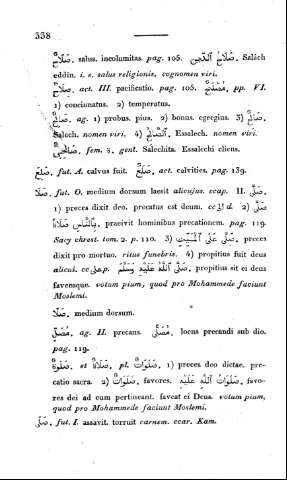 338
صَلَاحٌ. salus. incolumitas. pag. 105. صَلَاحُ ٱلدِّينِ. Salách
eddin. i. e. salus religionis. cognomen viri.
صِلَاحٌ. act. III. pacificatio. pag. 105. مُصَلَّحٌ. pp. VI.
1) concinnatus. 2) temperatus.
صَالِحٌ. ag. 1) probus. pius. 2) bonus. egregius. 3) صَالِحٌ.
Salech. nomen viri. 4) ٱلصَّالِحُ. Essalech. nomen viri.
صَالِحِيٌّ. fem. ة. gent. Salechita. Essalechi cliens.
صَلِعَ. fut. A. calvus fuit. صَلَعٌ. act. calvities. pag. 139.
صَلَا. fut. O. medium dorsum laesit alicujus. ccap. II. صَلَّى.
1) preces dixit deo. precatus est deum. cc. d. 2) صَلَّى
بِٱلنَّاسِ صَلَاةً. praeivit hominibus precationem. pag. 119.
Sacy chrest. tom. 2. p. 110. 3) صَلَّى عَلَى ٱلْمَيِّتِ. preces
dixit pro mortuo. ritus funebris. 4) propitius fuit deus
alicui. cc على p. صَلَّى ٱللّٰهُ عَلَيْهِ وَسَلَّمَ. propitius sit ei deus
faveasque. votum pium, quod pro Mohammede faciunt
Moslemi.
صَلَا. medium dorsum.
مُصَلٍّ. ag. II. precans. مُصَلًّى. locus precandi sub dio.
pag. 119.
صَلٰوةٌ. et صَلَاةٌ. pl. صَلَوَاتٌ. 1) preces deo dictae. pre-
catio sacra. 2) صَلَوَاتٌ. favores. صَلَوَاتُ ٱللّٰهِ عَلَيْهِ. favo-
res dei ad eum pertineant. faveat ei Deus. votum pium,
quod pro Mohammede faciunt Moslemi.
صَلَى. fut. I. assavit. torruit carnem. ccar. Kam.